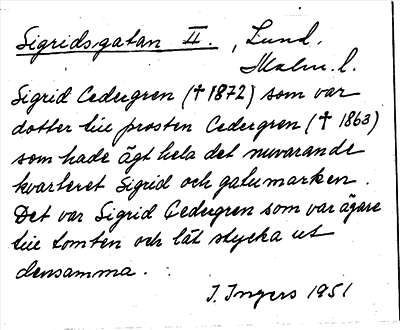 Sigridsgatan II. , Lund.
Malm. l.
Sigrid Cedergren († 1872) som var
dotter till prosten Cedergren († 1863)
som hade ägt hela det nuvarande
kvarteret Sigrid och gatumarken.
Det var Sigrid Cedergren som var ägare
till tomten och lät stycka ut
densamma.
I. Ingers 1951